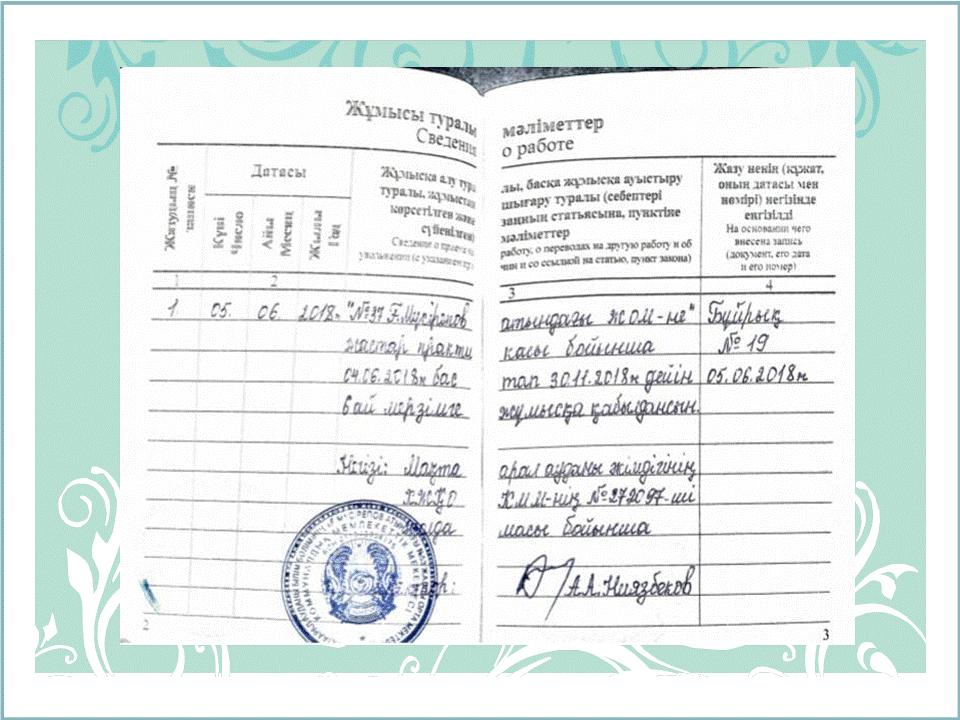 Жұмысы туралы мәліметтер
Сведения о работе
Жазудың №
Датасы
Күні
Число
Айы
Месяц
Жылы
Год
Жұмысқа алу тура
туралы, жұмыстан
көрсетілген және
сүйенілген)
Сведения о приеме на
увольнении (с указанием пр
1
2
лы, басқа жұмысқа ауыстыру
шығару туралы (себептері
заңның статьясына, пунктіне
мәліметтер
работу, о переводах на другую работу и об
чин и со ссылкой на статью, пункт закона)
3
Жазу ненің (құжат,
оның датасы мен
нөмірі) негізінде
енгізілді
На основании чего
внесена запись
(документ, его дата
и его номер)
4
1. 05. 06. 2018ж "№37 Ғ.Мүсірепов атындағы ЖОМ-не" Бұйрық
жастар практи касы бойынша №19
04.06.2018ж бас тап 30.11.2018ж дейін 05.06.2018ж
6 ай мерзімге жұмысқа қабылдансын.
Негізі: Мақта арал ауданы әкімдігінің
ХЖҚО КММ-нің №272097-ші
масы бойынша
А.А.Ниязбеков
2
3